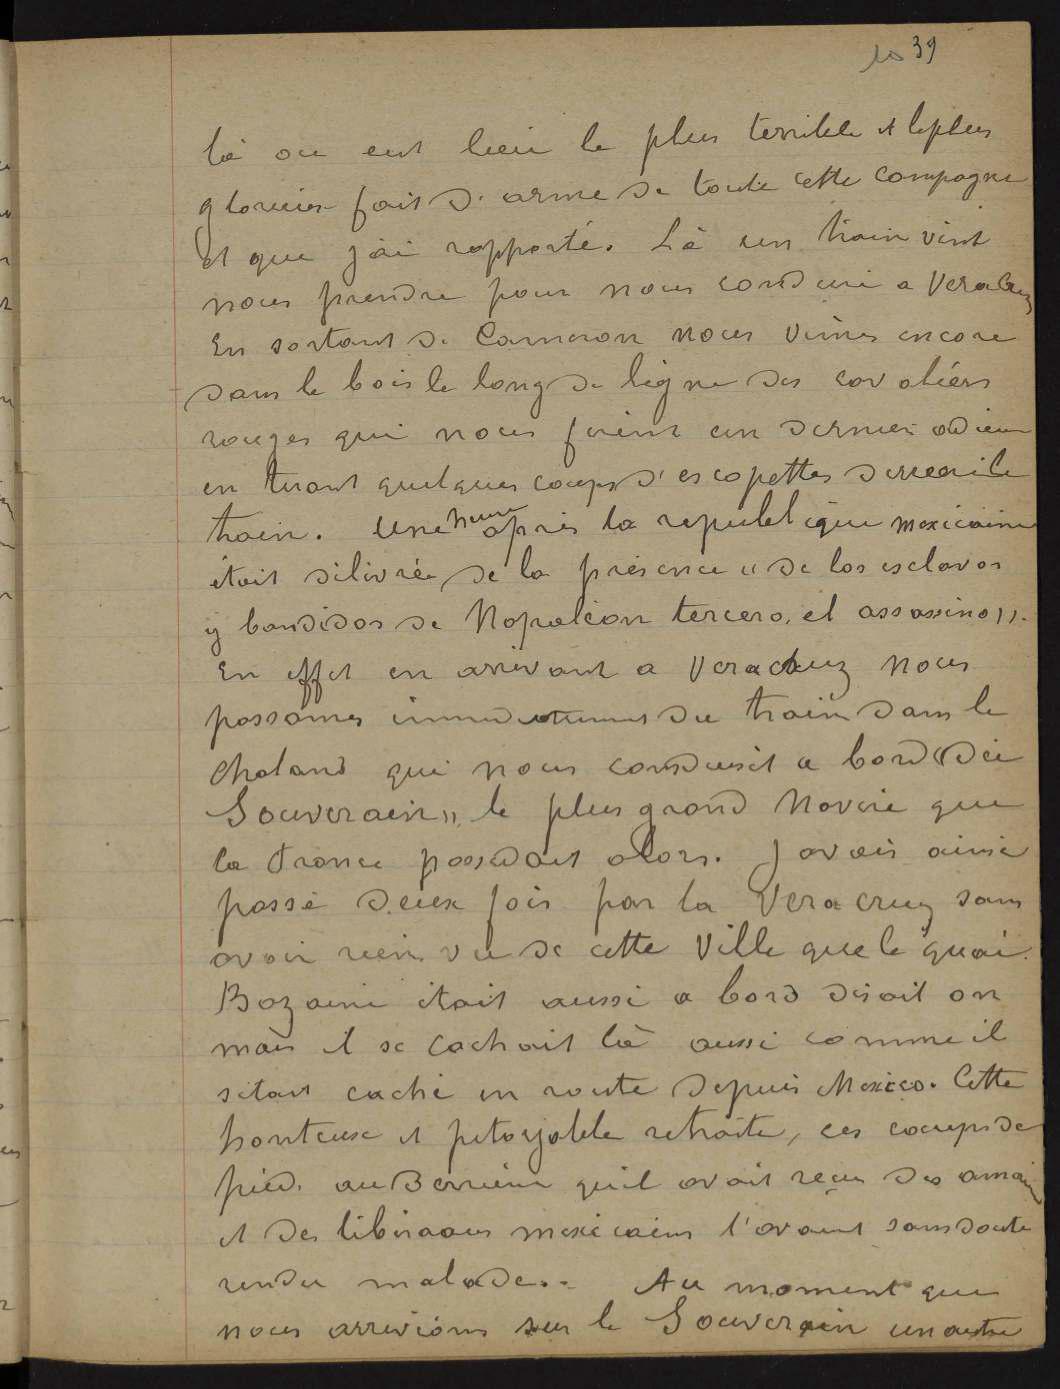 39
là ou eut lieu le plus terrible et leplus
glorieux fait d'arme de toute cette campagne
et que j'ai rapporté. Là un train vint
nous prendre pour nous conduire a Veracruz
En sortant de Cameron nous vimes encore
dans le bois le long de ligne des cavaliers
rouges qui nous firent un dernier adieu
en tirant quelques coups d'escopettes derrière le
train. Une heure après la republique mexicaine
était délivrée de la présence « de los esclavos
y bandidos de Napoléon tercero, el assassino ».
En effet en arrivant a Veracruz nous
passames immediatement du train dans le
chaland qui nous conduisit a bord « du
Souverain », le plus grand Navire que
la France possedait alors. J avais ainsi
passé deux fois par la Veracruz sans
avoir rien vu de cette Ville que le quai.
Bazaine était aussi a bord disait on
mais il se cachait là aussi comme il
setait caché en route depuis Mexico. Cette
honteuse et pitoyable retraite, ces coups de
pied. au Derrière quil avait reçu des amain
et des liberaaux mexicains l'avaient sans doute
rendu malade.. Au moment que
nous arrivions sur le Souverain un autre